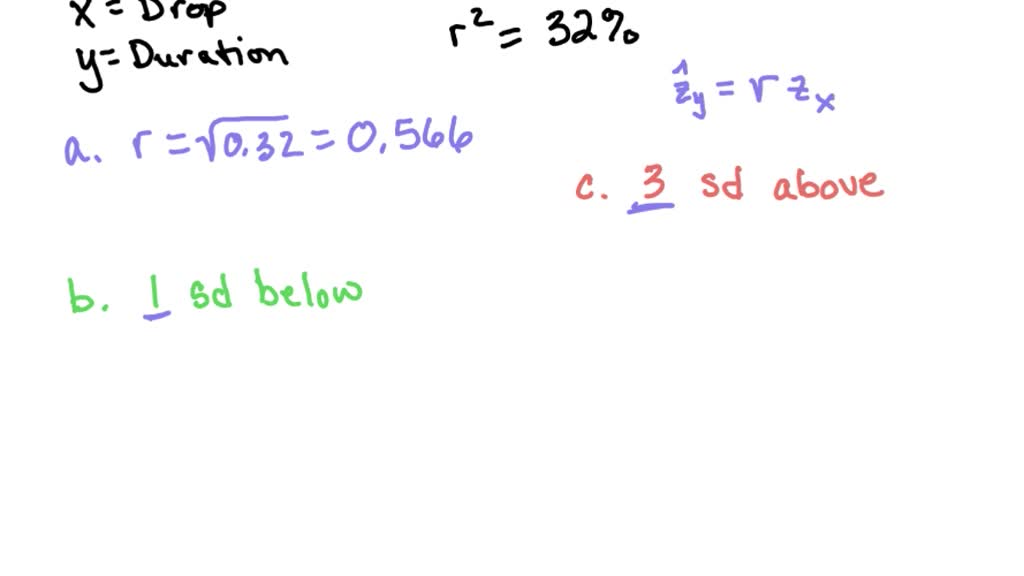 x = Drop
y = Duration
r² = 32%
ẑ_y = r z_x
a. r = √0.32 = 0.566
c. 3 sd above
b. 1 sd below